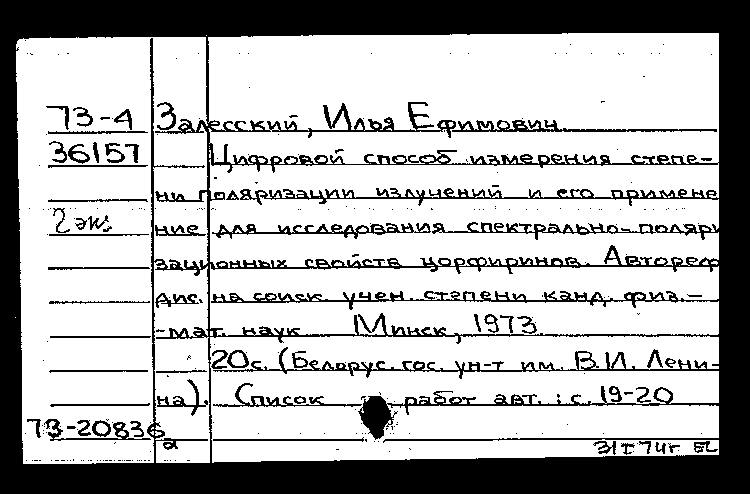 73-4 Залесский, Илья Ефимович.
36157 Цифровой способ измерения степе-
ни поляризации излучений и его примене
2 экз ние для исследования спектрально-поляри
зационных свойств порфиринов. Автореф
дис. на соиск. учен. степени канд. физ.-
-мат. наук Минск, 1973.
20с. (Белорус. гос. ун-т им. В.И. Лени-
на). Список работ авт.: с. 19-20
73-20836 а
31 I 74г